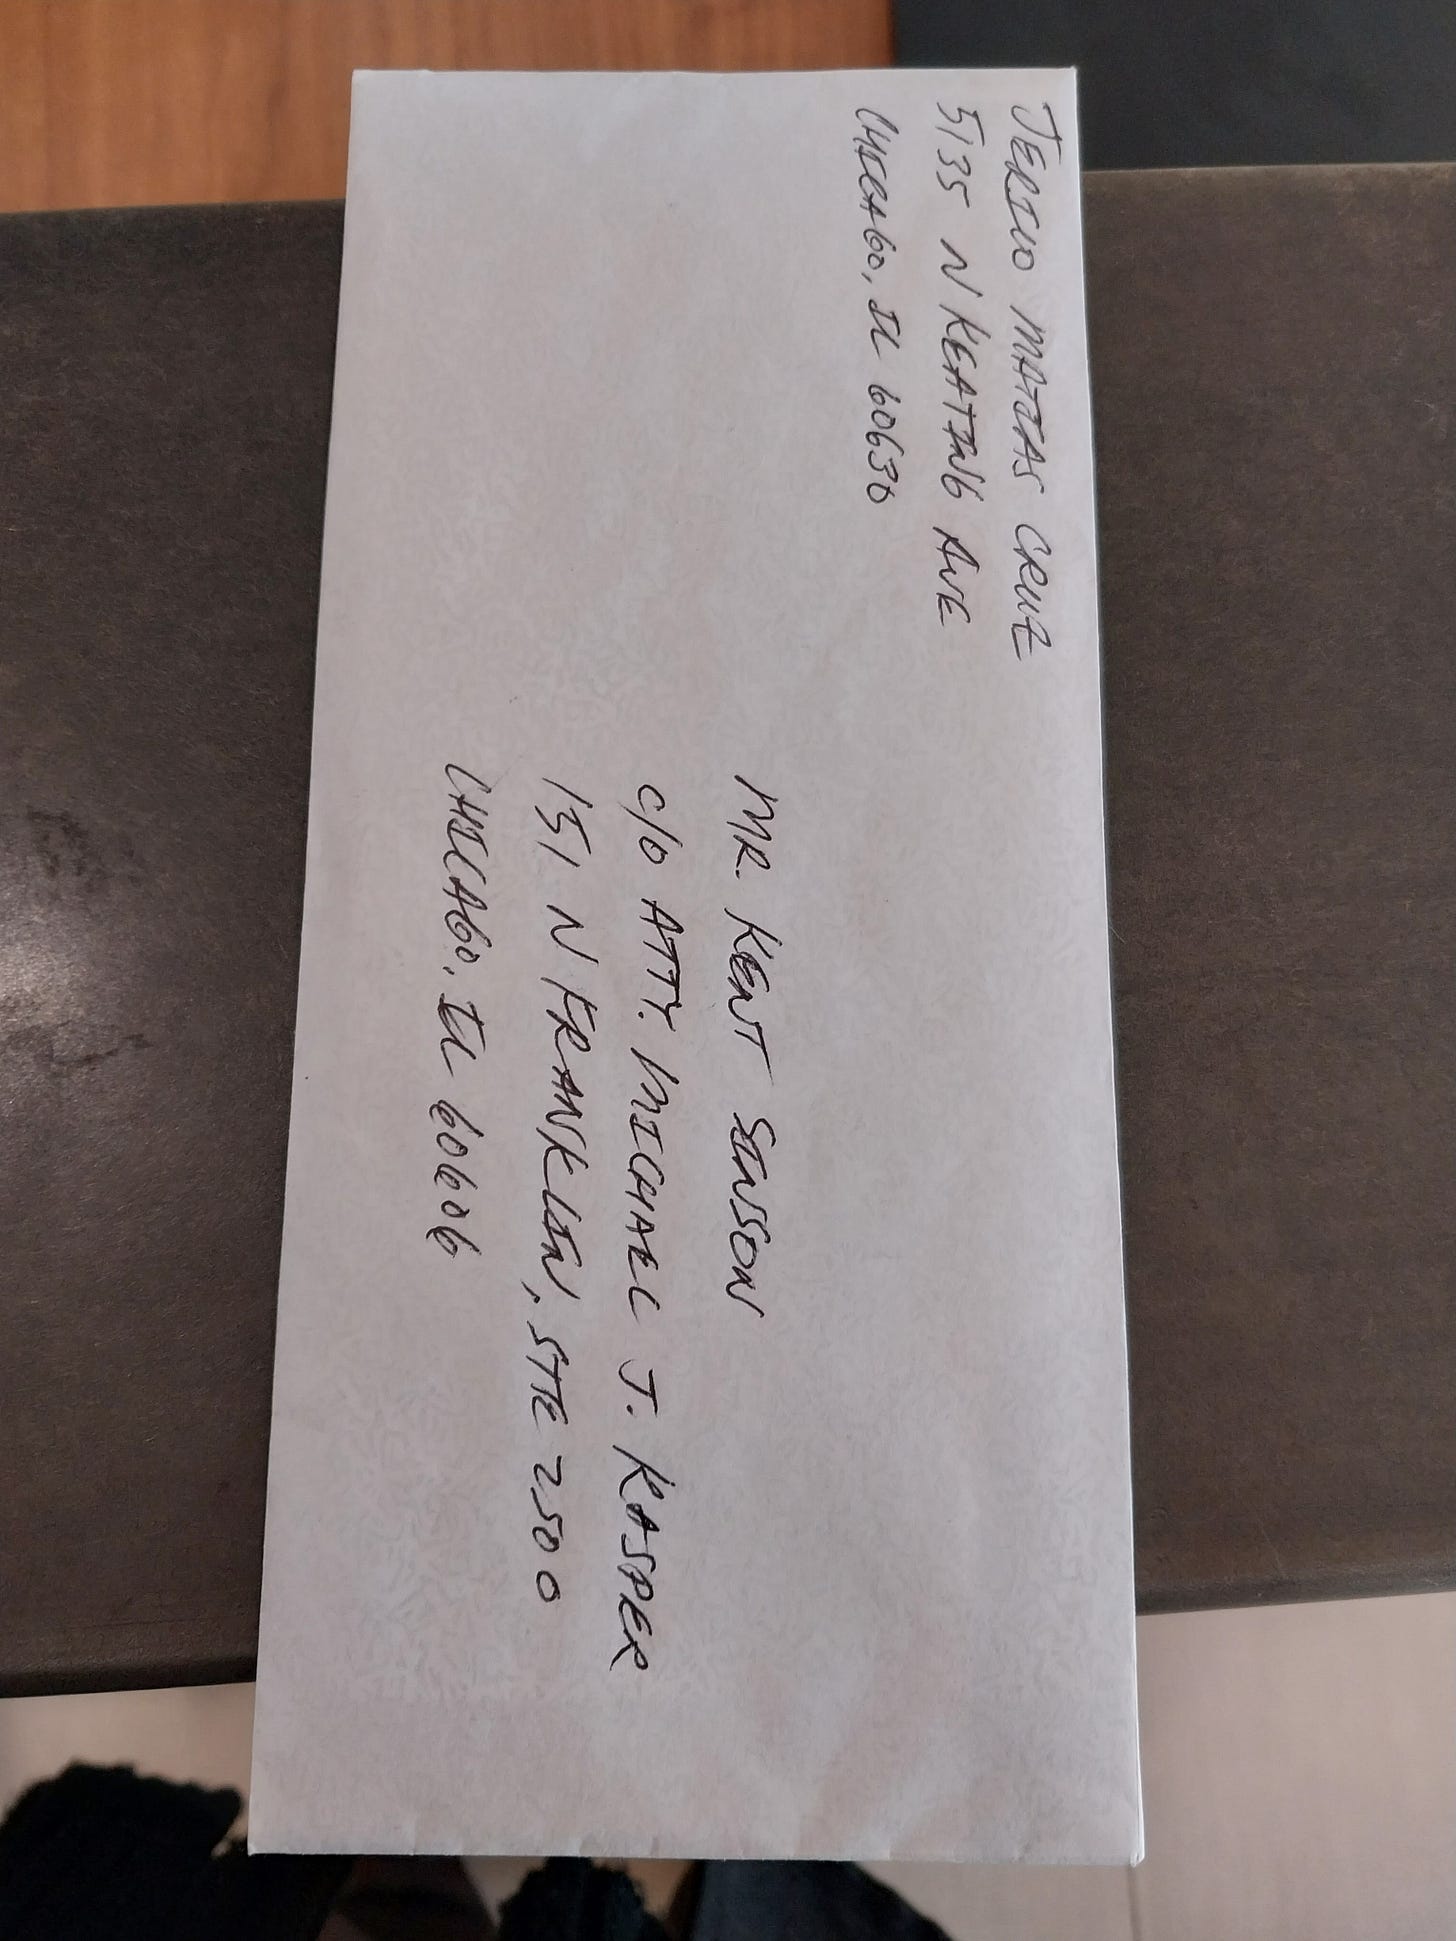 JERICO MATIAS CRUZ
5135 N KEATING AVE
CHICAGO, IL 60630
MR. KENT SINSON
c/o ATTY. MICHAEL J. KASPER
151 N FRANKLIN, STE 2500
CHICAGO, IL 60606